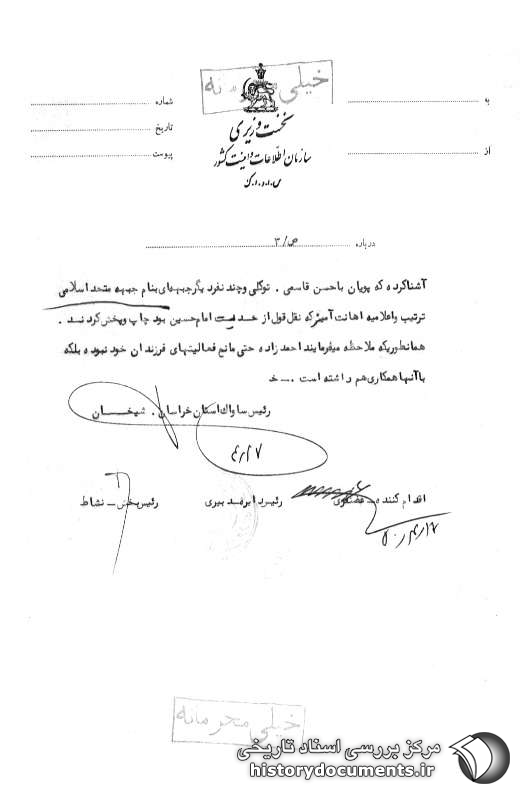 خیلی محرمانه
نخست وزیری
سازمان اطلاعات و امنیت کشور
س.ا.و.ا.ک
به
از
شماره
تاریخ
پیوست
درباره ص/۳
آشناکرده که پویان باحسن قاسمی . توکلی وچند نفرد یگرجبهه‌ای بنام جبهه متحد اسلامی
ترتیب واعلامیه اهانت آمیزکه نقل قول از حدیث امام حسین بود چاپ وپخش کردند .
همانطوریکه ملاحظه میفرمایند احمد زاده حتی مانع فعالیتهای فرزندان خود نبوده بلکه
باآنها همکاری هم داشته است . خ
رئیس ساواک استان خراسان . شیخان
۴/۱۷
اقدام کننده
رئیس بخش ـ نشاط
۵۰/۴/۱۷
خیلی محرمانه
مرکز بررسی اسناد تاریخی
historydocuments.ir